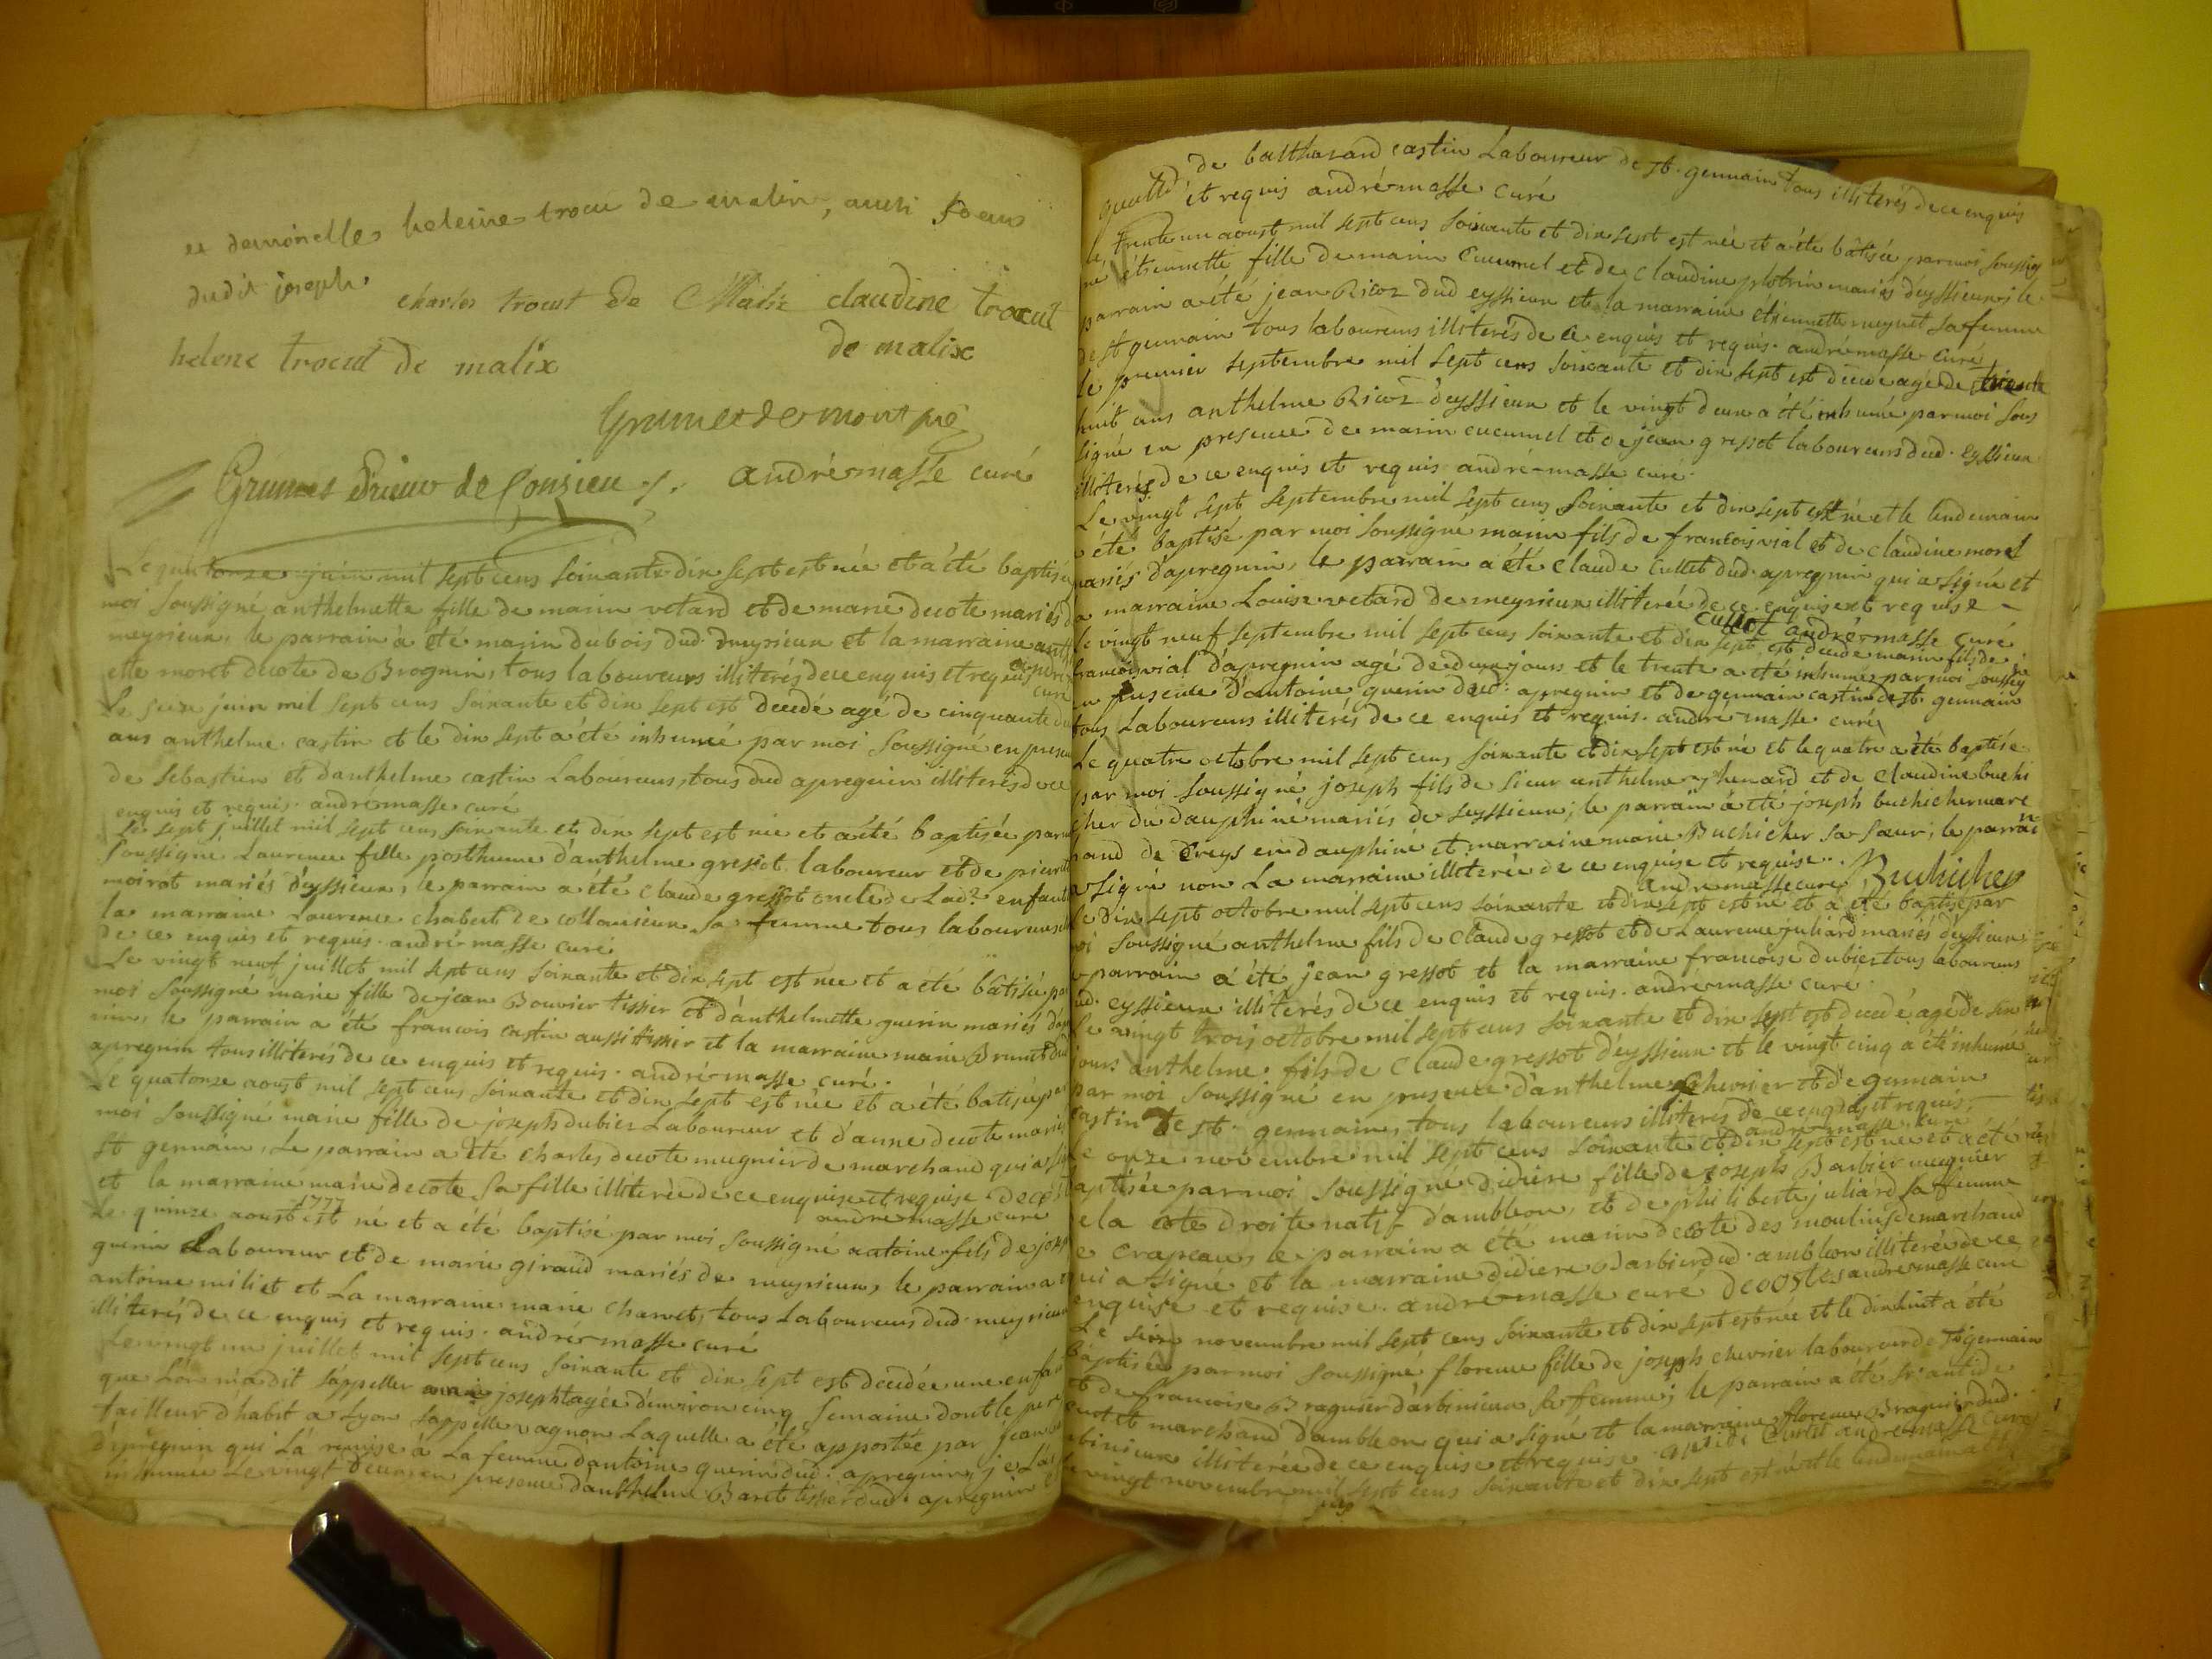 et demoiselle heleine trocu de malix, aussi soeur
dudit joseph
charles trocut de Malix claudine trocut
helene trocut de malix de malix
Grumet de montpie
Grumet Prieur de Conzieu ./. andré masse curé
Le quatorze juin mil sept cens soixante dix sept est née et a été baptisée
moi soussigné anthelmette fille de marin vetard et de marie decote mariés d
meyrieux, le parrain a été marin dubois dud. meyrieux et la marraine anth
ette moret decote de Brognin, tous laboureurs illiterés de ce enquis et requis andré
curé
Le seize juin mil sept cens soixante et dix sept est decedé agé de cinquante
ans anthelme castin et le dix sept a été inhumé par moi soussigné en presen
de sebastien et d'anthelme castin Laboureurs, tous dud apregnin illiterés de ce
enquis et requis. andré masse curé
Le sept juillet mil sept cens soixante et dix sept est née et a été baptisée par
soussigné Laurence fille posthume d'anthelme gressot laboureur et de pierrette
moirot mariés d'eyssieux, le parrain a été claude gressot oncle de Lad.e enfant
la marraine Laurence chabert de collonieux sa femme tous laboureurs
de ce enquis et requis. andré masse curé
Le vingt neuf juillet mil sept cens soixante et dix sept est née et a été bâtisée par
moi soussigné marie fille de jean Bouvier tissier et d'anthelmette guerin mariés d'ap
nin, le parrain a été francois castin aussi tissier et la marraine marie Brunet dud
apregnin tous illiterés de ce enquis et requis. andré masse curé.
Le quatorze aoust mil sept cens soixante et dix sept est née et a été batisée par
moi soussigné marie fille de joseph dubier Laboureur et d'anne decote mariés
St germain, Le parrain a été charles decote mugnier de marchand qui a
et la marraine marie decote sa fille illiterée de ce enquise et requise
andré masse curé
Le quinze aoust 1777 est né et a été baptisé par moi soussigné antoine fils de jos
guerin Laboureur et de marie giraud mariés de meyrieux, le parrain a
antoine miliet et La marraine marie charvet, tous Laboureurs dud. meyrieux
illiterés de ce enquis et requis. andré masse curé
Le vingt un juillet mil sept cens soixante et dix sept est decedée une enfant
que l'on m'a dit s'appeller josephe agée d'environ cinq semaine dont le pere
tailleur d'habit a Lyon s'appelle vagnon Laquelle a été apportée par jean
d'apregnin qui L'a remise à La femme d'antoine guerin dud. apregnin, je L'ai
inhumée Le vingt deux en presence d'anthelme Baret tissier dud. apregnin
de balthazard castin Laboureur de St. germain tous illiterés de ce enquis
et requis andré masse curé
le trente un aoust mil sept cens soixante et dix sept est née et a été bâtisée par moi soussig
né étiennette fille de marin Cucumel et de claudine plotrin mariés d'eyssieux; le
parrain a été jean Ricoz dud eyssieux et la marraine étiennette meynet sa femme
de St germain tous laboureurs illiterés de ce enquis et requis. andré masse curé
le premier septembre mil sept cens soixante et dix sept est decedé agé de trente
huit ans anthelme Ricoz d'eyssieux et le vingt deux a été inhumé par moi sous
signé en presence de marin cucumel et de jean gressot laboureurs dud. eyssieux
illiterés de ce enquis et requis andré masse curé.
Le vingt sept septembre mil sept cens soixante et dix sept est né et le lendemain
a été baptisé par moi soussigné marin fils de francois vial et de claudine morel
mariés d'apregnin, le parrain a été claude cullet dud. apregnin qui a signé et
la marraine Louise vetard de meyrieux illiterée de ce enquise et requise
cullet andré masse curé
Le vingt neuf septembre mil sept cens soixante et dix sept est decedé marin fils de
francois vial d'apregnin agé de deux jours et le trente a été inhumé par moi soussigné
en presence d'antoine guerin dud: apregnin et de germain castin de St. germain
tous Laboureurs illiterés de ce enquis et requis. andré masse curé
Le quatre octobre mil sept cens soixante et dix sept est né et le quatre a été baptisé
par moi soussigné joseph fils de sieur anthelme thenard et de claudine buchi
cher du dauphiné mariés de seyssieux; le parrain a été joseph buchicher marc
hand de Creys en dauphiné et marraine marie Buchicher sa soeur; le parrain
a signé non La marraine illiterée de ce enquise et requise.
andré masse curé Buchicher
Le dix sept octobre mil sept cens soixante et dix sept est né et a été baptisé par
moi soussigné anthelme fils de claude gressot et de Laurence juliard mariés d'eyssieux
le parrain a été jean gressot et la marraine francoise dubier tous laboureurs
dud. eyssieux illiterés de ce enquis et requis. andré masse curé.
Le vingt trois octobre mil sept cens soixante et dix sept est decedé agé de six
jours anthelme fils de claude gressot d'eyssieux et le vingt cinq a été inhumé
par moi soussigné en presence d'anthelme Chevrier et de germain
castin de St. germain, tous laboureurs illiterés de ce enquis et requis,
andré masse curé
Le onze novembre mil sept cens soixante et dix sept est née et a été
baptisée par moi soussigné didiere fille de joseph Barbier mugnier
de la cote droite natif d'ambleon, et de philiberte juliard sa femme
de crapeaux le parrain a été marin decote des moulins de marchand
qui a signé et la marraine didiere Barbier dud. ambleon illiterée de ce
enquise et requise. andré masse curé decostes andré masse curé
Le seize novembre mil sept cens soixante et dix sept est née et le dix huit a été
baptisée par moi soussigné florence fille de joseph chevrier laboureur de St germain
et de francoise Braguier d'arbinieux sa femme; le parrain a été Sr. antide
curtet marchand d'ambleon qui a signé et la marraine florence Braguier dud.
arbinieux illiterée de ce enquise et requise. antide Curtet andré masse curé
Le vingt novembre mil sept cens soixante et dix sept est né et le lendemain a été